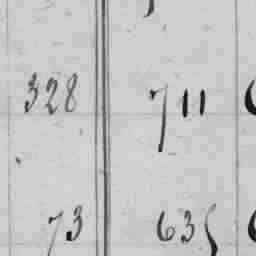 328 711
73 635